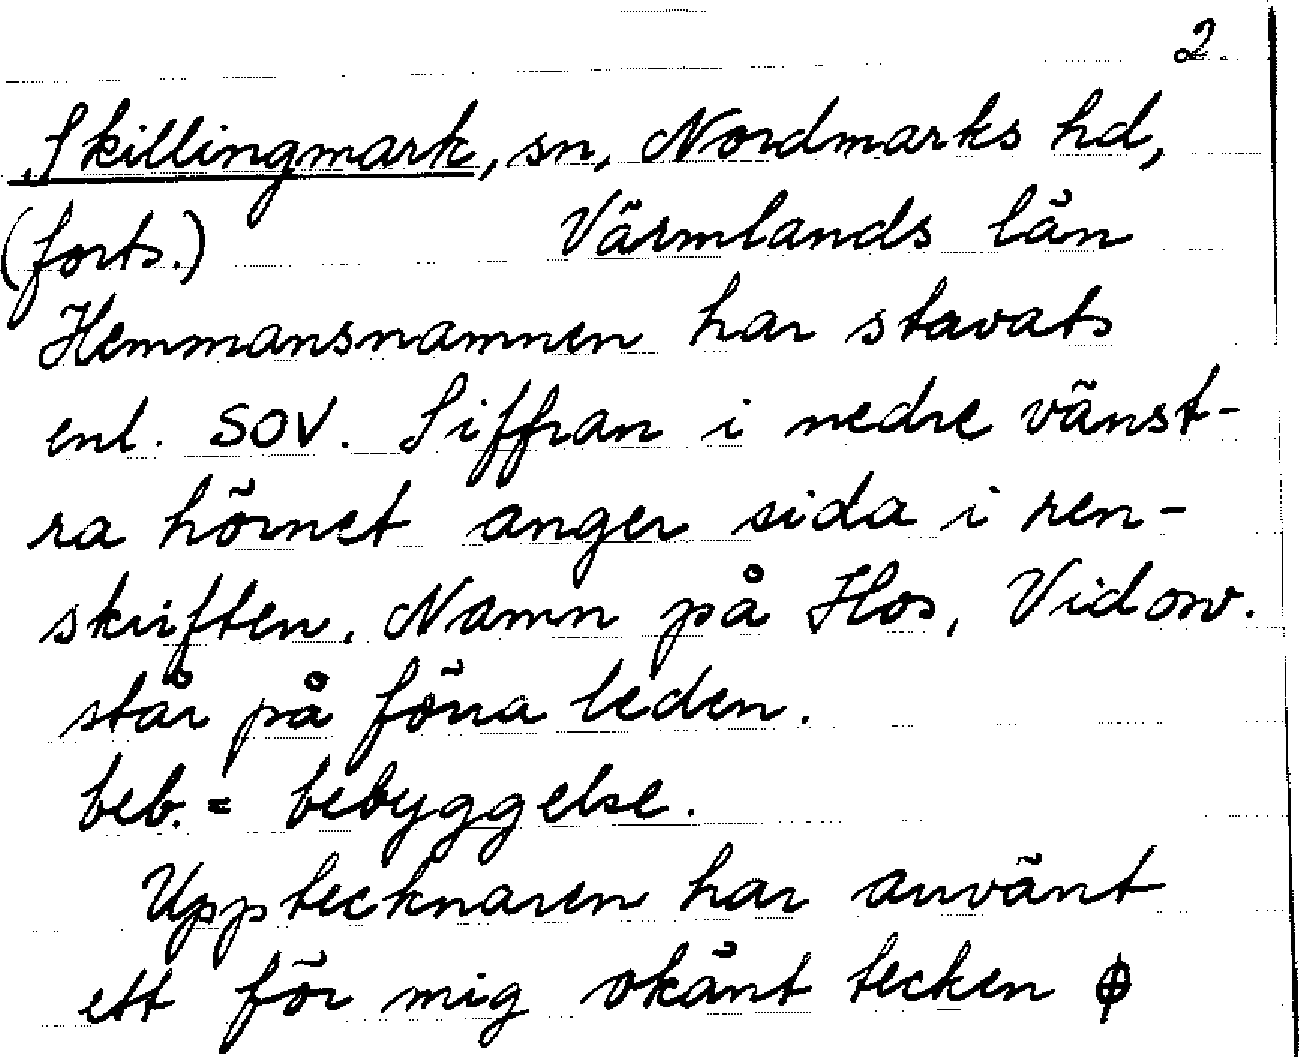 2.
Skillingmark, sn, Nordmarks hd,
(forts.) Värmlands län
Hemmansnamnen har stavats
enl. SOV. Siffran i nedre vänst-
ra hörnet anger sida i ren-
skriften. Namn på Hos, Vid osv.
står på förra leden.
beb. = bebyggelse.
Upptecknaren har använt
ett för mig okänt tecken ϕ